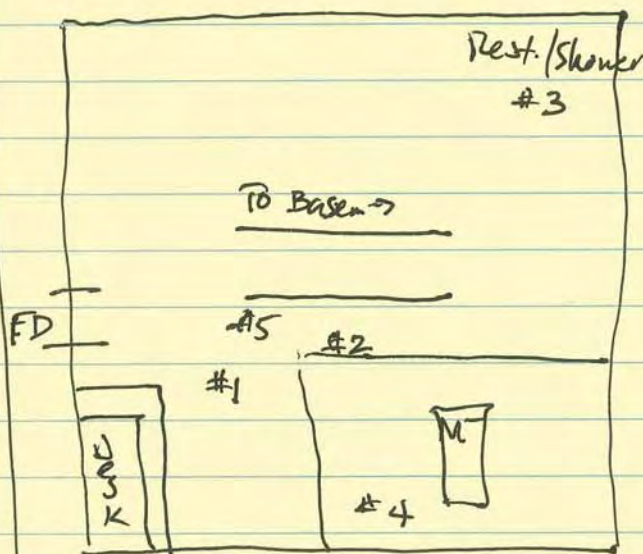 Rest./Shower
#3
To Basem→
FD
#5
#2
#1
Desk
M
#4